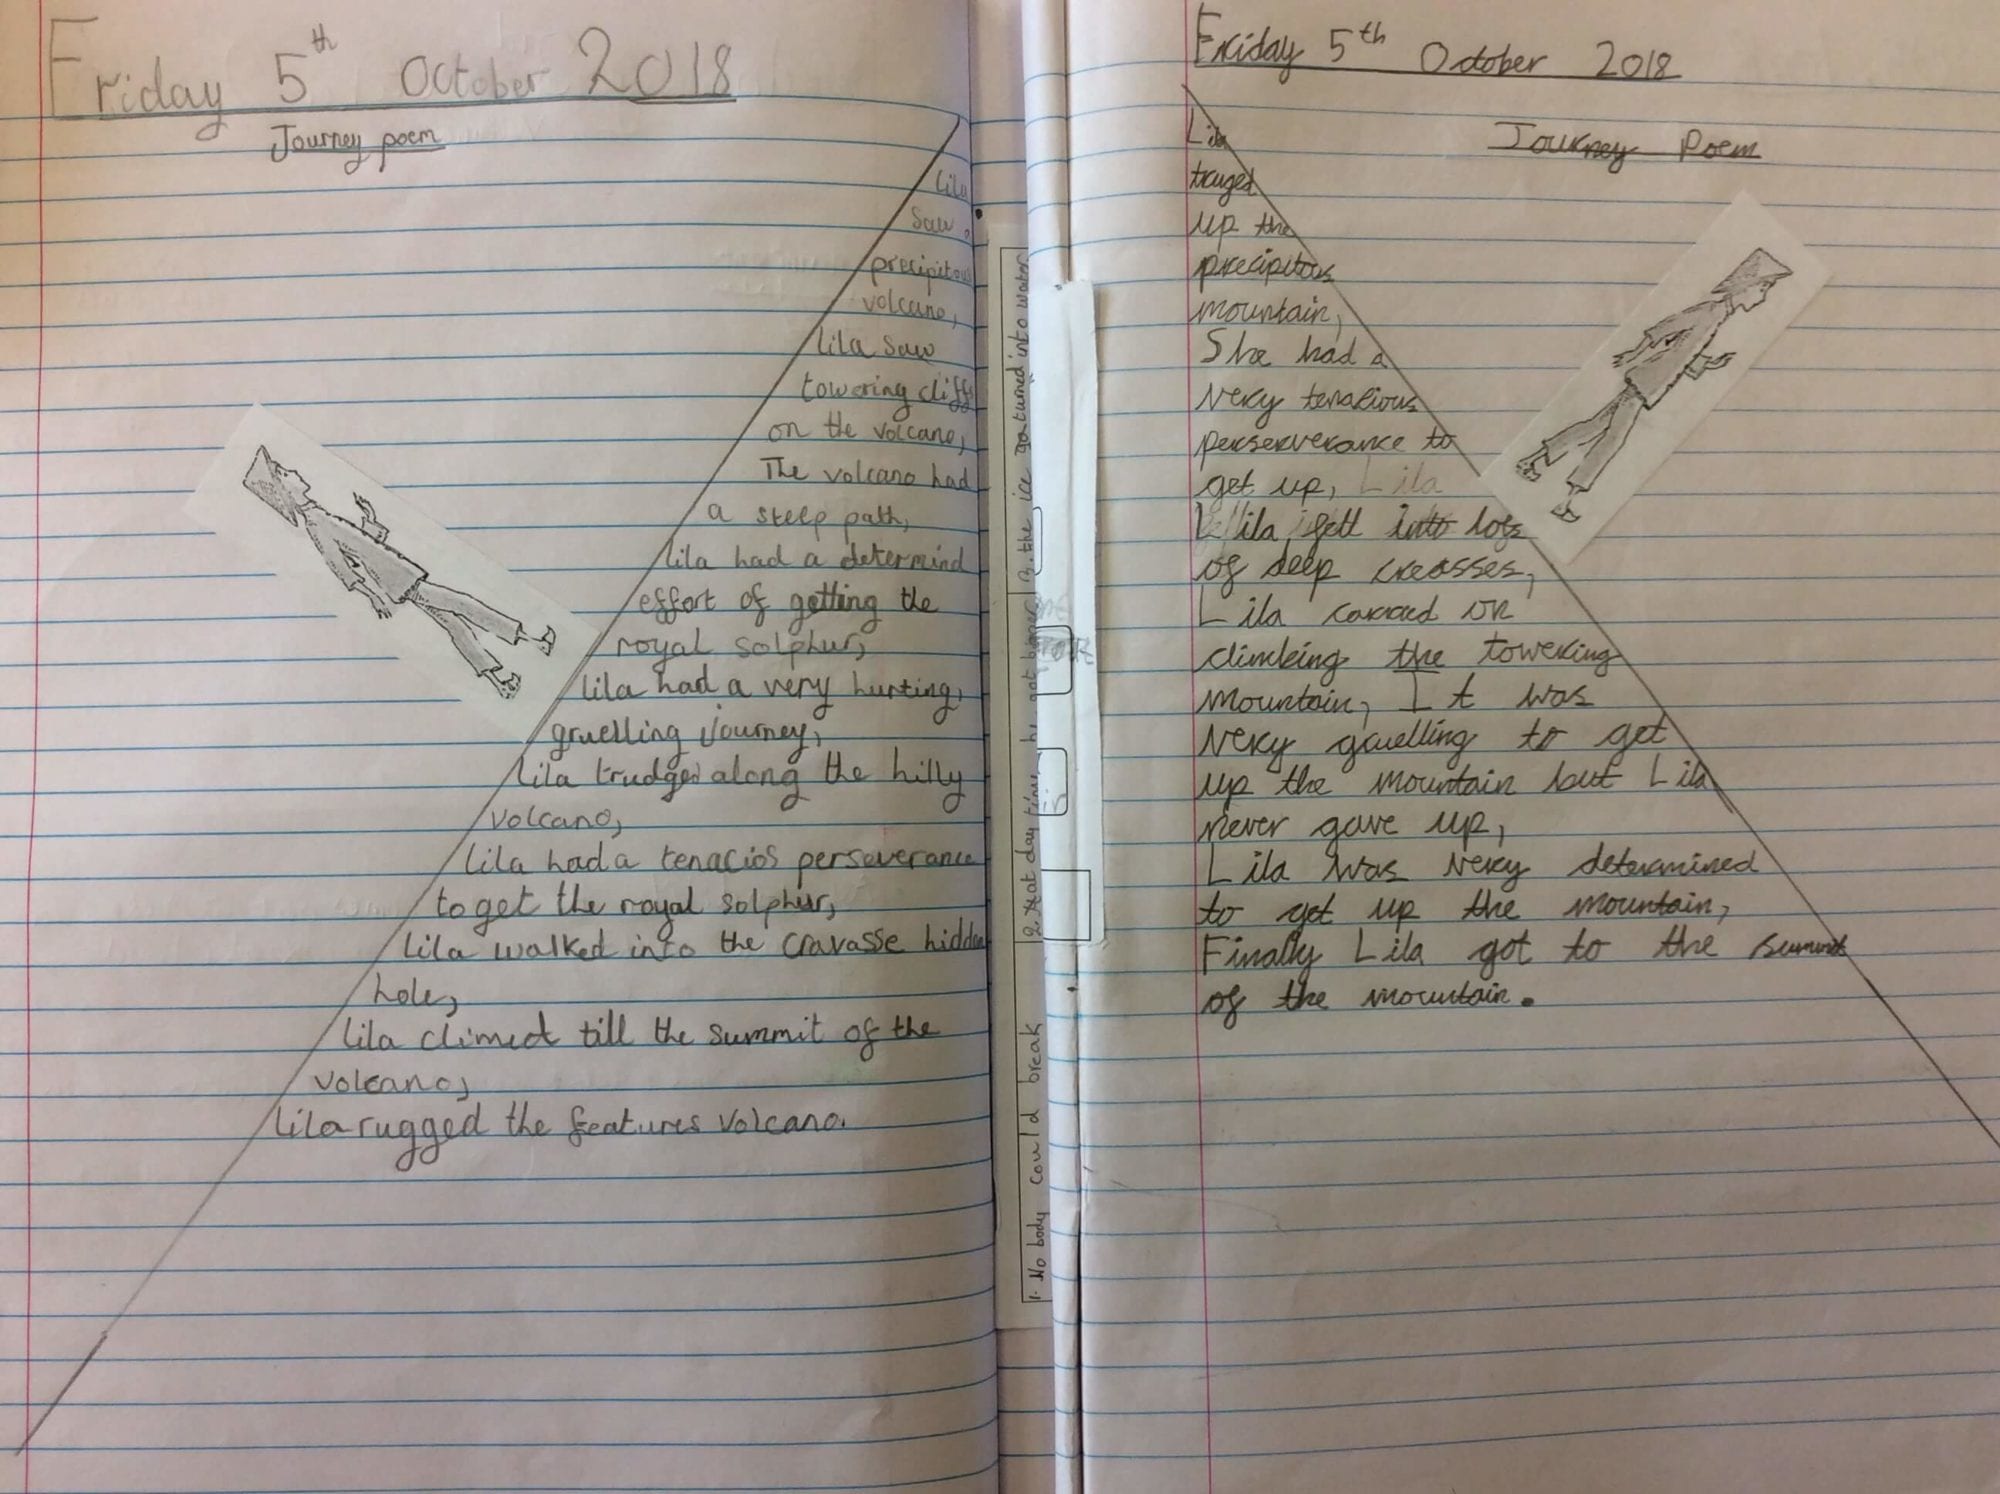 Friday 5th October 2018
Journey poem
lila
saw
precipitous
volcano,
lila saw
towering cliffs
on the volcano,
The volcano had
a steep path,
lila had a determind
effort of getting the
royal solphur,
lila had a very hurting,
gruelling journey,
lila trudged along the hilly
volcano,
lila had a tenacios perseverance
to get the royal solphur,
lila walked into the cravasse hidden
hole,
lila climed till the summit of the
volcano,
lila rugged the features volcano.
1. No body could break
2. that day time he got
3. the ice turned into water
Friday 5th October 2018
Journey Poem
Lila
truged
up the
precipitous
mountain,
She had a
very tenacious
perserverance to
get up, Lila
Lila fell into lots
of deep creasses,
Lila carred on
climbing the towering
mountain, It was
very gruelling to get
up the mountain but Lila
never gave up,
Lila was very determined
to get up the mountain,
Finally Lila got to the summit
of the mountain.